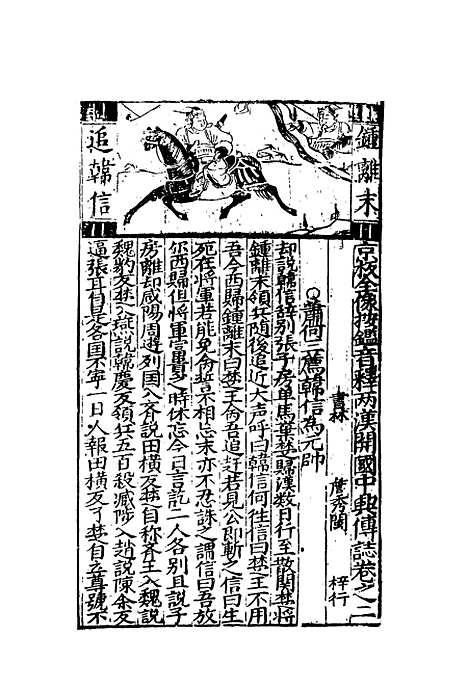 鍾離末
追韓信
京板全像按鑑音釋兩漢開國中興傳誌卷之二
書林 詹秀閩 梓行
○蕭何三薦韓信為元帥
却說韓信辞别張子房单馬棄楚歸漢数日行至散関楚將
鍾離末領兵随後追近大声呼曰韓信何往信曰楚王不用
吾今西歸鍾離末曰楚王令吾追赶若見公即斬之信曰生
死在將軍若能免命誓不相忘末亦不忍誅之謂信曰吾放
你西歸但將軍富貴之時休忘今日言訖二人各别且說子
房離却咸陽周遊列国入齐說田横反楚自称齐王入魏說
魏豹反楚入燕說韓慶反領兵五百殺滅陟入趙說陳余反
逼張耳自是各国不寧一日人報田横反了楚自立尊號不